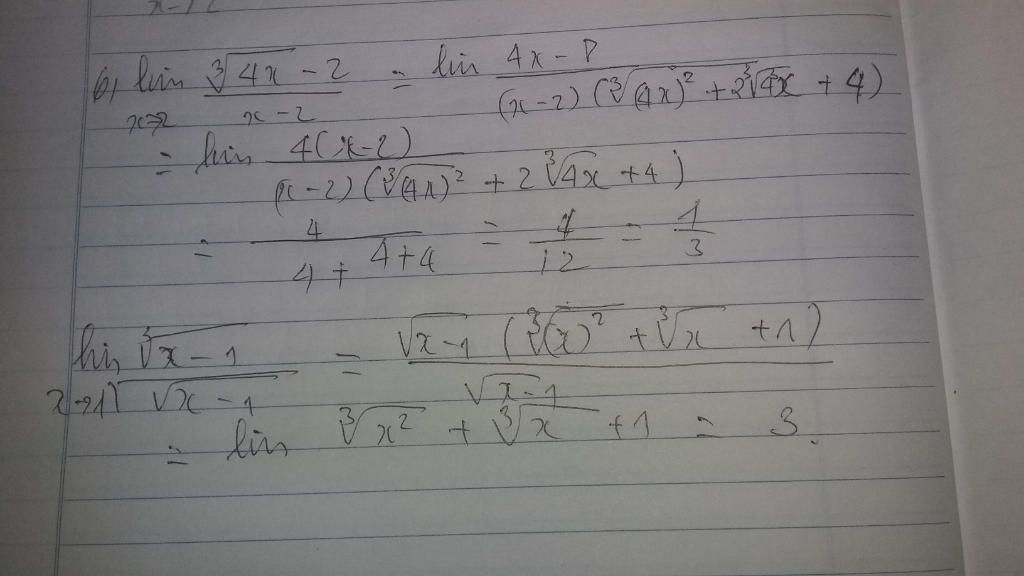 6) lim (∛(4x) - 2)/(x - 2) = lim (4x - 8)/((x - 2)(∛(4x)² + 2∛4x + 4))
x→2
= lim 4(x - 2)/((x - 2)(∛(4x)² + 2∛4x + 4))
= 4/(4 + 4 + 4) = 4/12 = 1/3
lim (∛x - 1)/(√x - 1) = √x - 1 (∛(x)² + ∛x + 1)/(√x - 1)
x→1
= lim ∛x² + ∛x + 1 = 3.